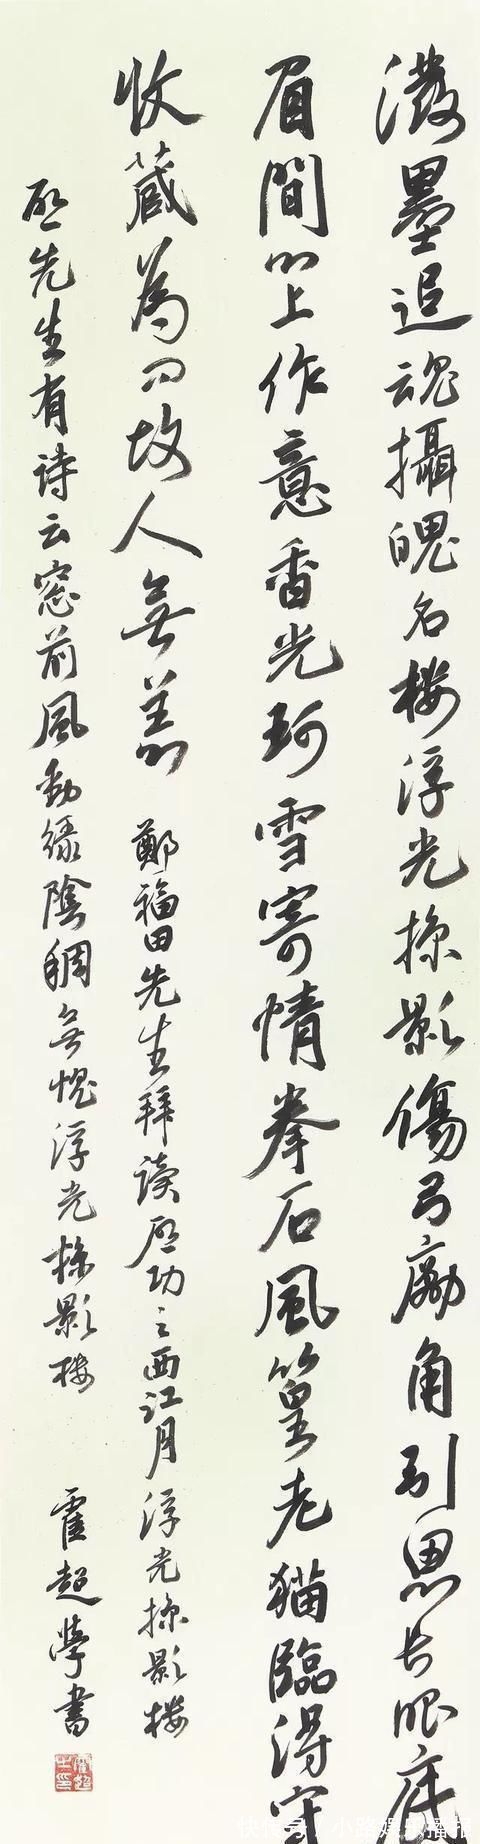 潑墨追魂攝魄名樓浮光掠影傷弓勵角引思長眼底
眉間心上作意香光珂雪寄情拳石風篁老貓臨得守
收藏為問故人無恙 鄭福田先生拜讀啟功之西江月 浮光掠影樓
啟先生有詩云窓前風動綠陰稠無愧浮光掠影樓 霍超學書